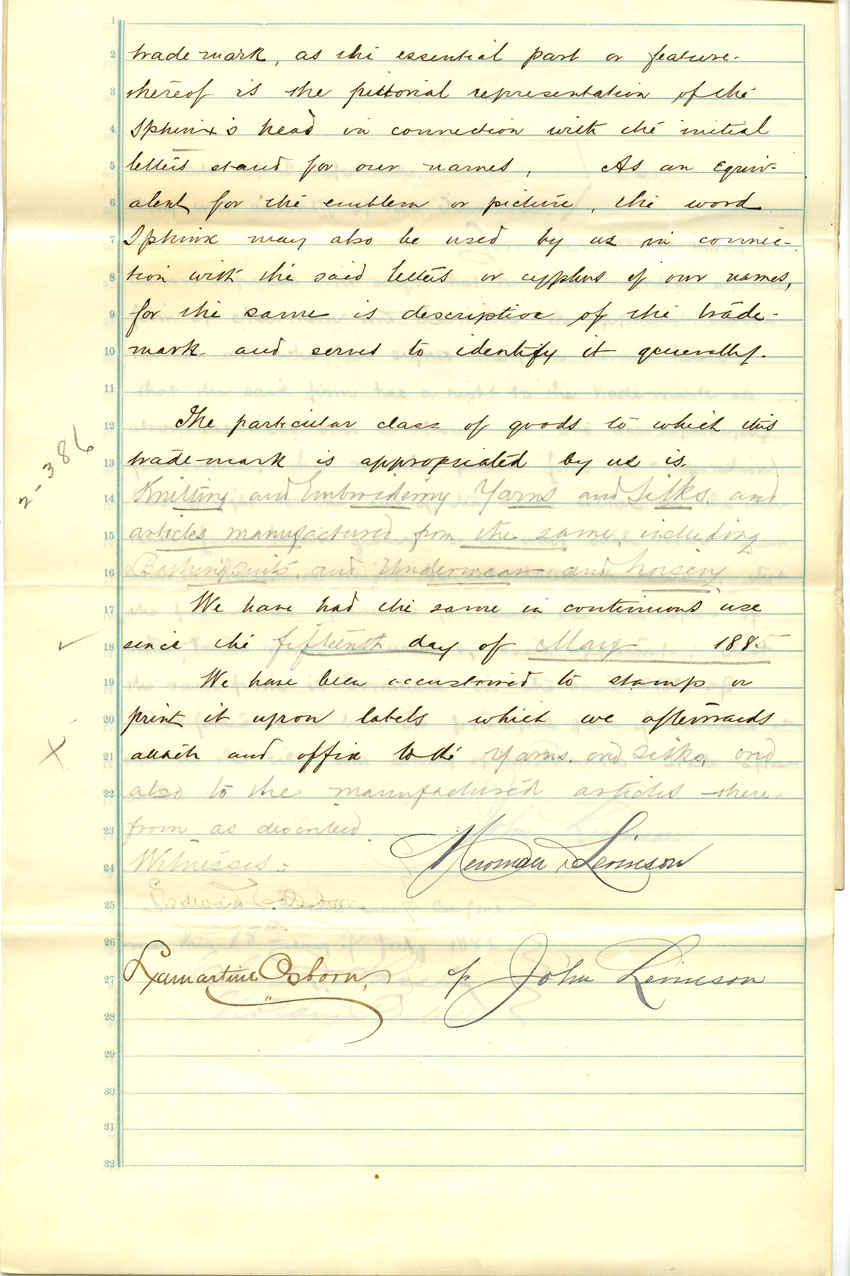 trade-mark, as the essential part or feature
thereof is the pictorial representation of the
Sphinx's head in connection with the initial
letters stand for our names, As an equiv-
alent for the emblem or picture, the word
Sphinx may also be used by us in connec-
tion with the said letters or cyphers of our names,
for the same is descriptive of the trade-
mark and serves to identify it generally.
The particular class of goods to which this
trade-mark is appropriated by us is
Knitting and Embroidering Yarns and Silks, and
articles manufactured from the same, including
Bathing Suits, and Underwear and hosiery
We have had the same in continuous use
since the fifteenth day of May 1885
We have been accustomed to stamp or
print it upon labels which we afterwards
attach and affix to the Yarns, and Silks, and
also to the manufactured articles there-
from as described
Newman Levinson
Witnesses:
Edward Osborn
Lamartine Osborn, p John Levinson
2-386
1
2
3
4
5
6
7
8
9
10
11
12
13
14
15
16
17
18
19
20
21
22
23
24
25
26
27
28
29
30
31
32